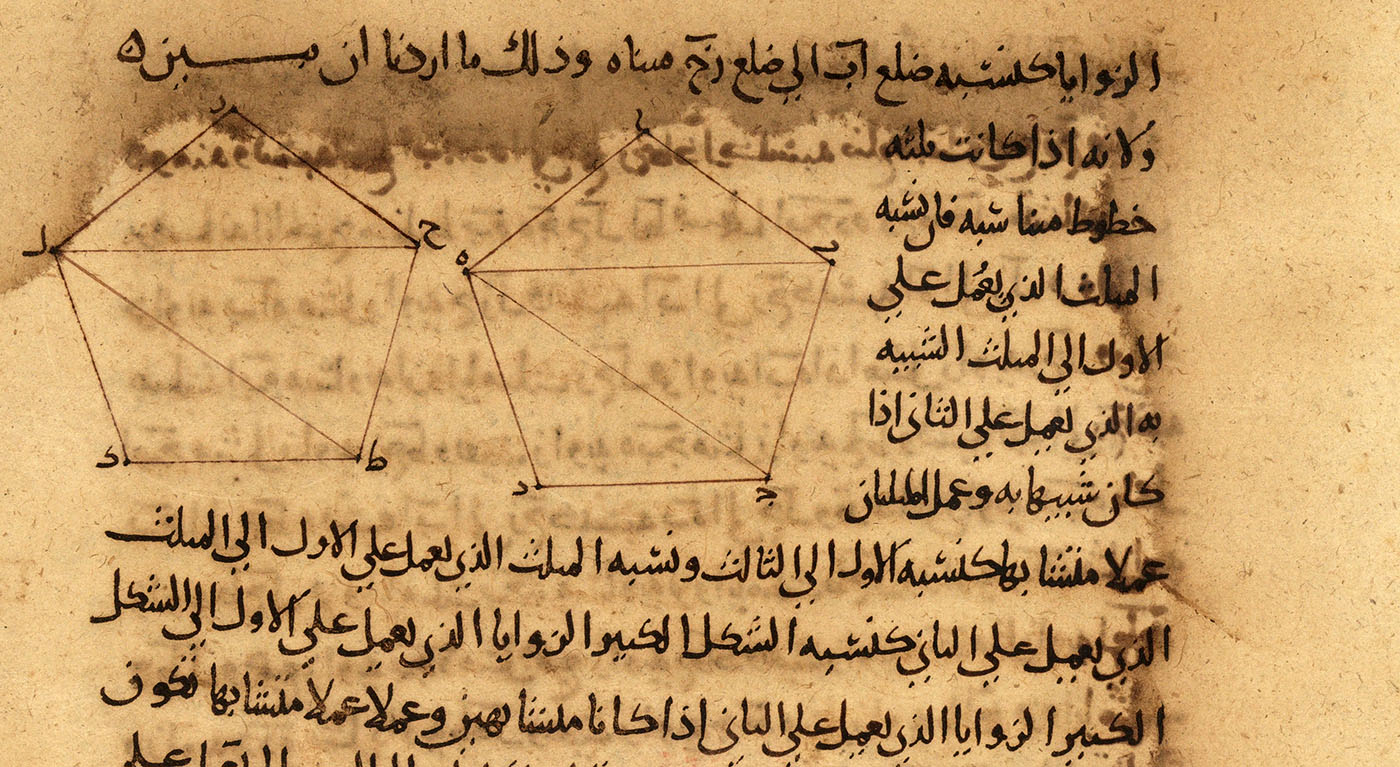 الزوايا كنسبة ضلع اب الي ضلع زح مثناه وذلك ما اردنا ان نبين ه
ولانه اذا كانت ثلثه
خطوط متناسبه فان نسبه
المثلث الذي يعمل علي
الاول الي المثلث الشبيه
به الذي يعمل علي الثاني اذا
كان شبيها به وعمل المثلثان
عملا متشابها كنسبه الاول الي الثالث ونسبه المثلث الذي يعمل علي الاول الي المثلث
الذي يعمل علي الثاني كنسبه الشكل الكثير الزوايا الذي يعمل علي الاول الي الشكل
الكثير الزوايا الذي يعمل علي الثاني اذا كانا متشابهين وعملا عملا متشابها تكون
ر
ح
ل
ط
ك
ا
ب
ه
ج
د